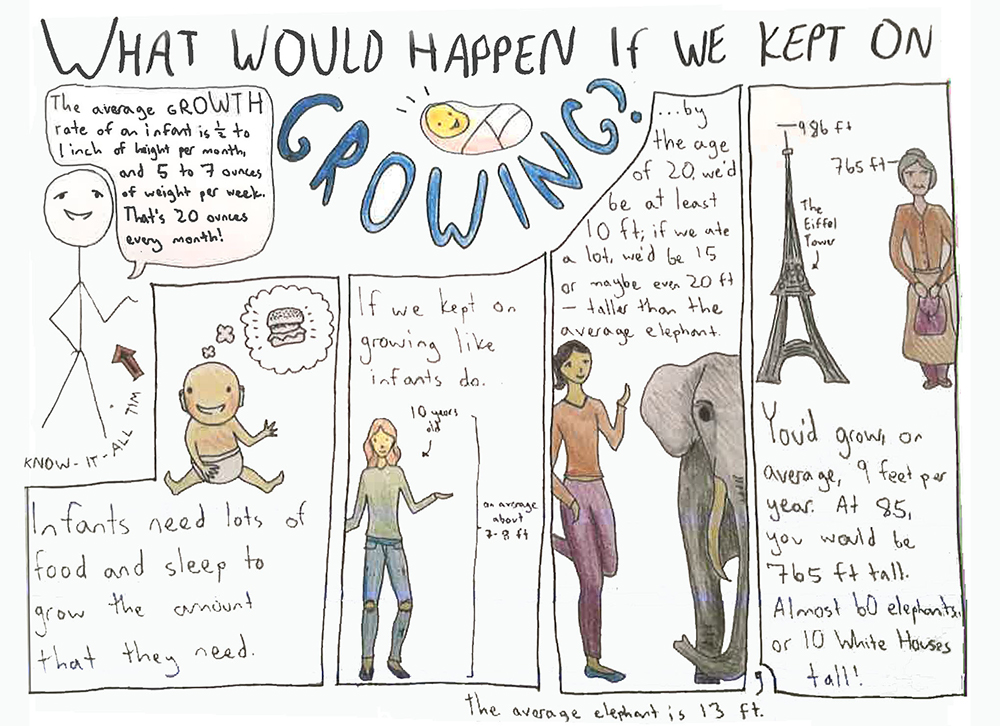 WHAT WOULD HAPPEN IF WE KEPT ON
GROWING?
The average GROWTH
rate of an infant is ½ to
1 inch of height per month,
and 5 to 7 ounces
of weight per week.
That's 20 ounces
every month!
KNOW-IT-ALL TIM
Infants need lots of
food and sleep to
grow the amount
that they need.
If we kept on
growing like
infants do.
10 years
old
on average
about
7-8 ft
...by
the age
of 20, we'd
be at least
10 ft; if we ate
a lot, we'd be 15
or maybe even 20 ft
— taller than the
average elephant.
the average elephant is 13 ft.
986 ft
765 ft
The
Eiffel
Tower
You'd grow, on
average, 9 feet per
year. At 85,
you would be
765 ft tall.
Almost 60 elephants,
or 10 White Houses
tall!